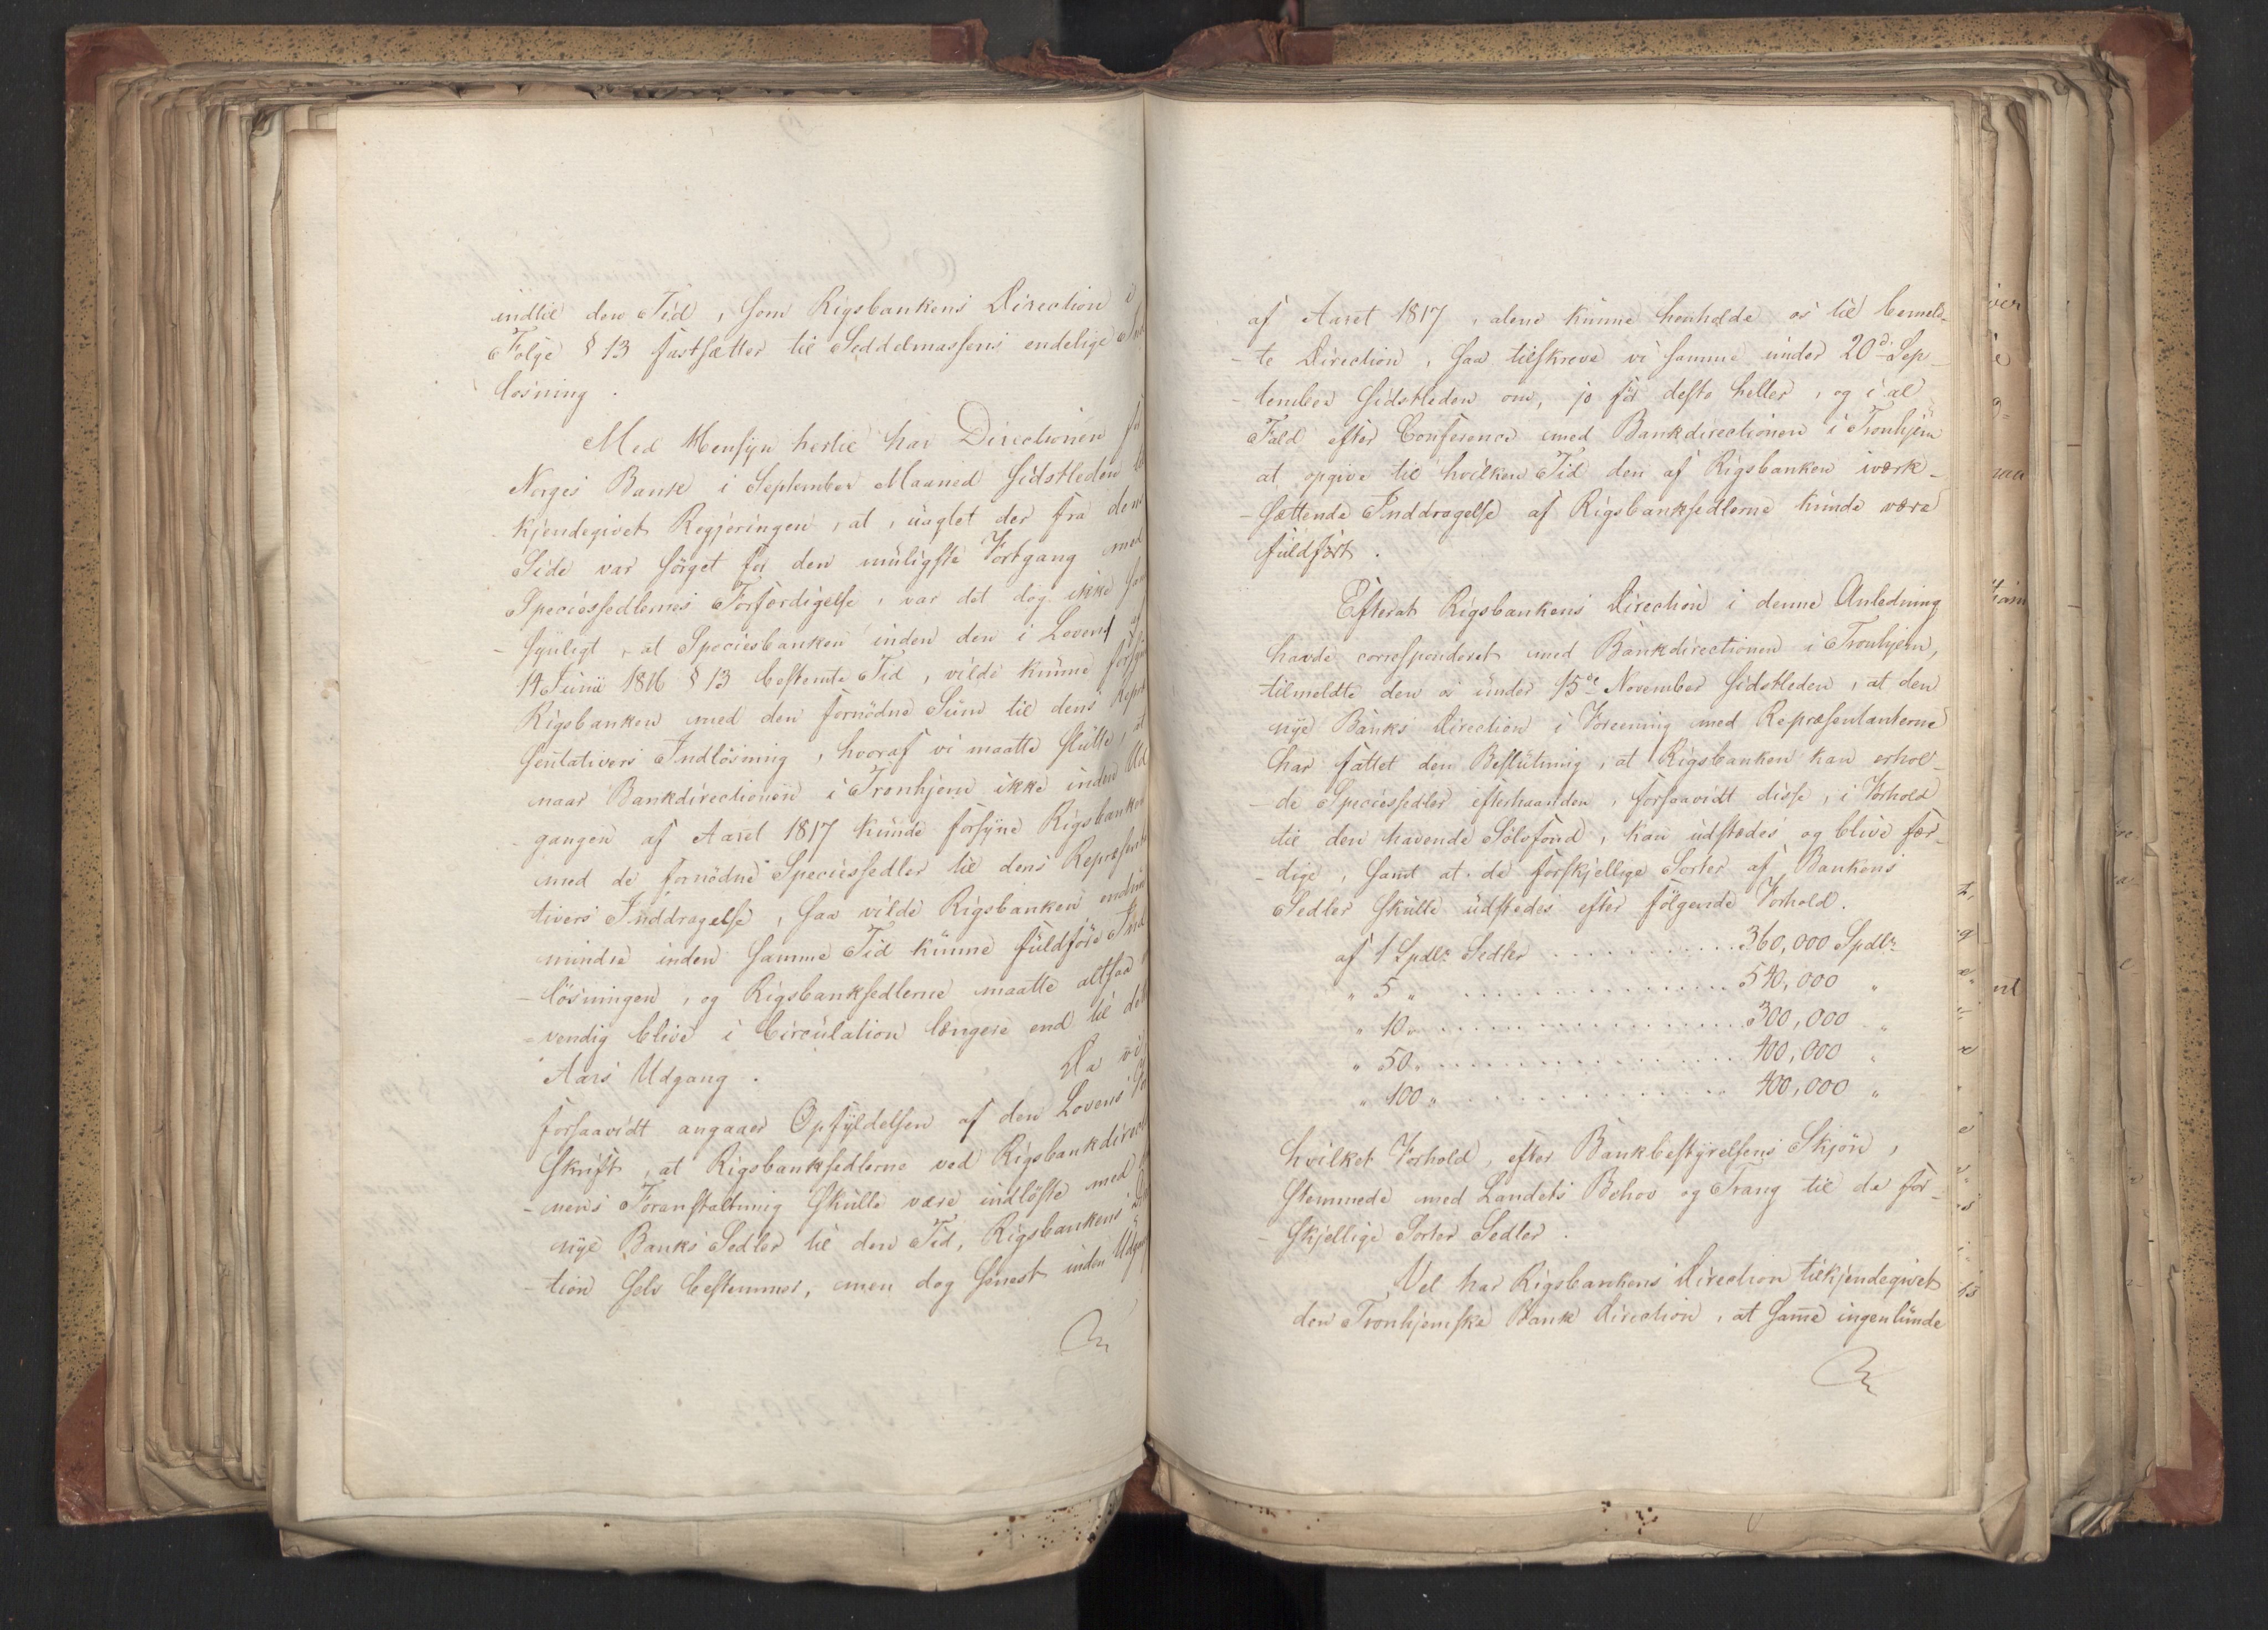 indtil den Tid, som Rigsbankens Direction i
Følge § 13 fastsætter til Seddelmassens endelige Ind
løsning.
Med Hensyn hertil har Directionen for
Norges Bank i September Maaned sidstleden til
kjendegivet Regjeringen, at, uagtet der fra dens
Side var sørget for den muligste Fortgang med
Speciessedlernes Forfærdigelse, var det dog ikke sand
- synligt, at Speciesbanken inden den i Loven af
14 Junii 1816 § 13 bestemte Tid, vilde kunne forsyne
Rigsbanken med den fornødne Sum til dens Repræ
sentativers Indløsning, hvoraf vi maatte slutte, at
naar Bankdirectionen i Tronhjem ikke inden Ud
- gangen af Aaret 1817 kunde forsyne Rigsbanken
med de fornødne Speciessedler til dens Repræsenta
tivers Inddragelse, saa vilde Rigsbanken endnu
mindre inden samme Tid kunne fuldføre Ind
- løsningen, og Rigsbanksedlerne maatte altsaa
- vendig blive i Circulation længere end til det
Aars Udgang.
Da vi
forsaavidt angaaer Opfyldelsen af den Lovens For
skrift, at Rigsbanksedlerne ved Rigsbankdirectio
- nens Foranstaltning skulle være indløste med
nye Banks Sedler til den Tid, Rigsbankens Direc
- tion selv bestemmer, men dog senest inden Udgangen
af Aaret 1817, alene kunne henholde os til bemeld-
- te Direction, saa tilskreve vi samme under 20d. Sep-
- tember sidstleden om, jo før desto heller, og i al
Fald efter Conference med Bankdirectionen i Tronhjem
at opgive til hvilken Tid den af Rigsbanken iværk-
- sættende Inddragelse af Rigsbanksedlerne kunde være
fuldført.
Efterat Rigsbankens Direction i denne Anledning
havde correspenderet med Bankdirectionen i Tronhjem,
tilmeldte den os under 15de November sidstleden, at den
nye Banks Direction i Foreening med Repræsentanterne
har fattet den Beslutning, at Rigsbanken kan erhol-
- de Speciessedler efterhaanden, forsaavidt disse, i Forhold
til den havende Sølvfond, kan udstædes og blive fær-
- dige, samt at de forskjellige Sorter af Bankens
Sedler skulle udstedes efter følgende Forhold.
af 1 Spdlr Sedler . . . . . . . . . . . 360,000 Spdlr
" 5 " . . . . . . . . . . . . . . 540,000 "
" 10 " . . . . . . . . . . . . . . . . 300,000 "
" 50 " . . . . . . . . . . . . . . . . 400,000 "
" 100 " . . . . . . . . . . . . . . 400,000 "
hvilket Forhold, efter Bankbestyrelsens Skjøn,
stemmede med Landets Behov og Trang til de for-
- skjellige Sorter Sedler.
Vel har Rigsbankens Direction tilkjendegivet
den Tronhjemske Bank Direction, at samme ingenlunde